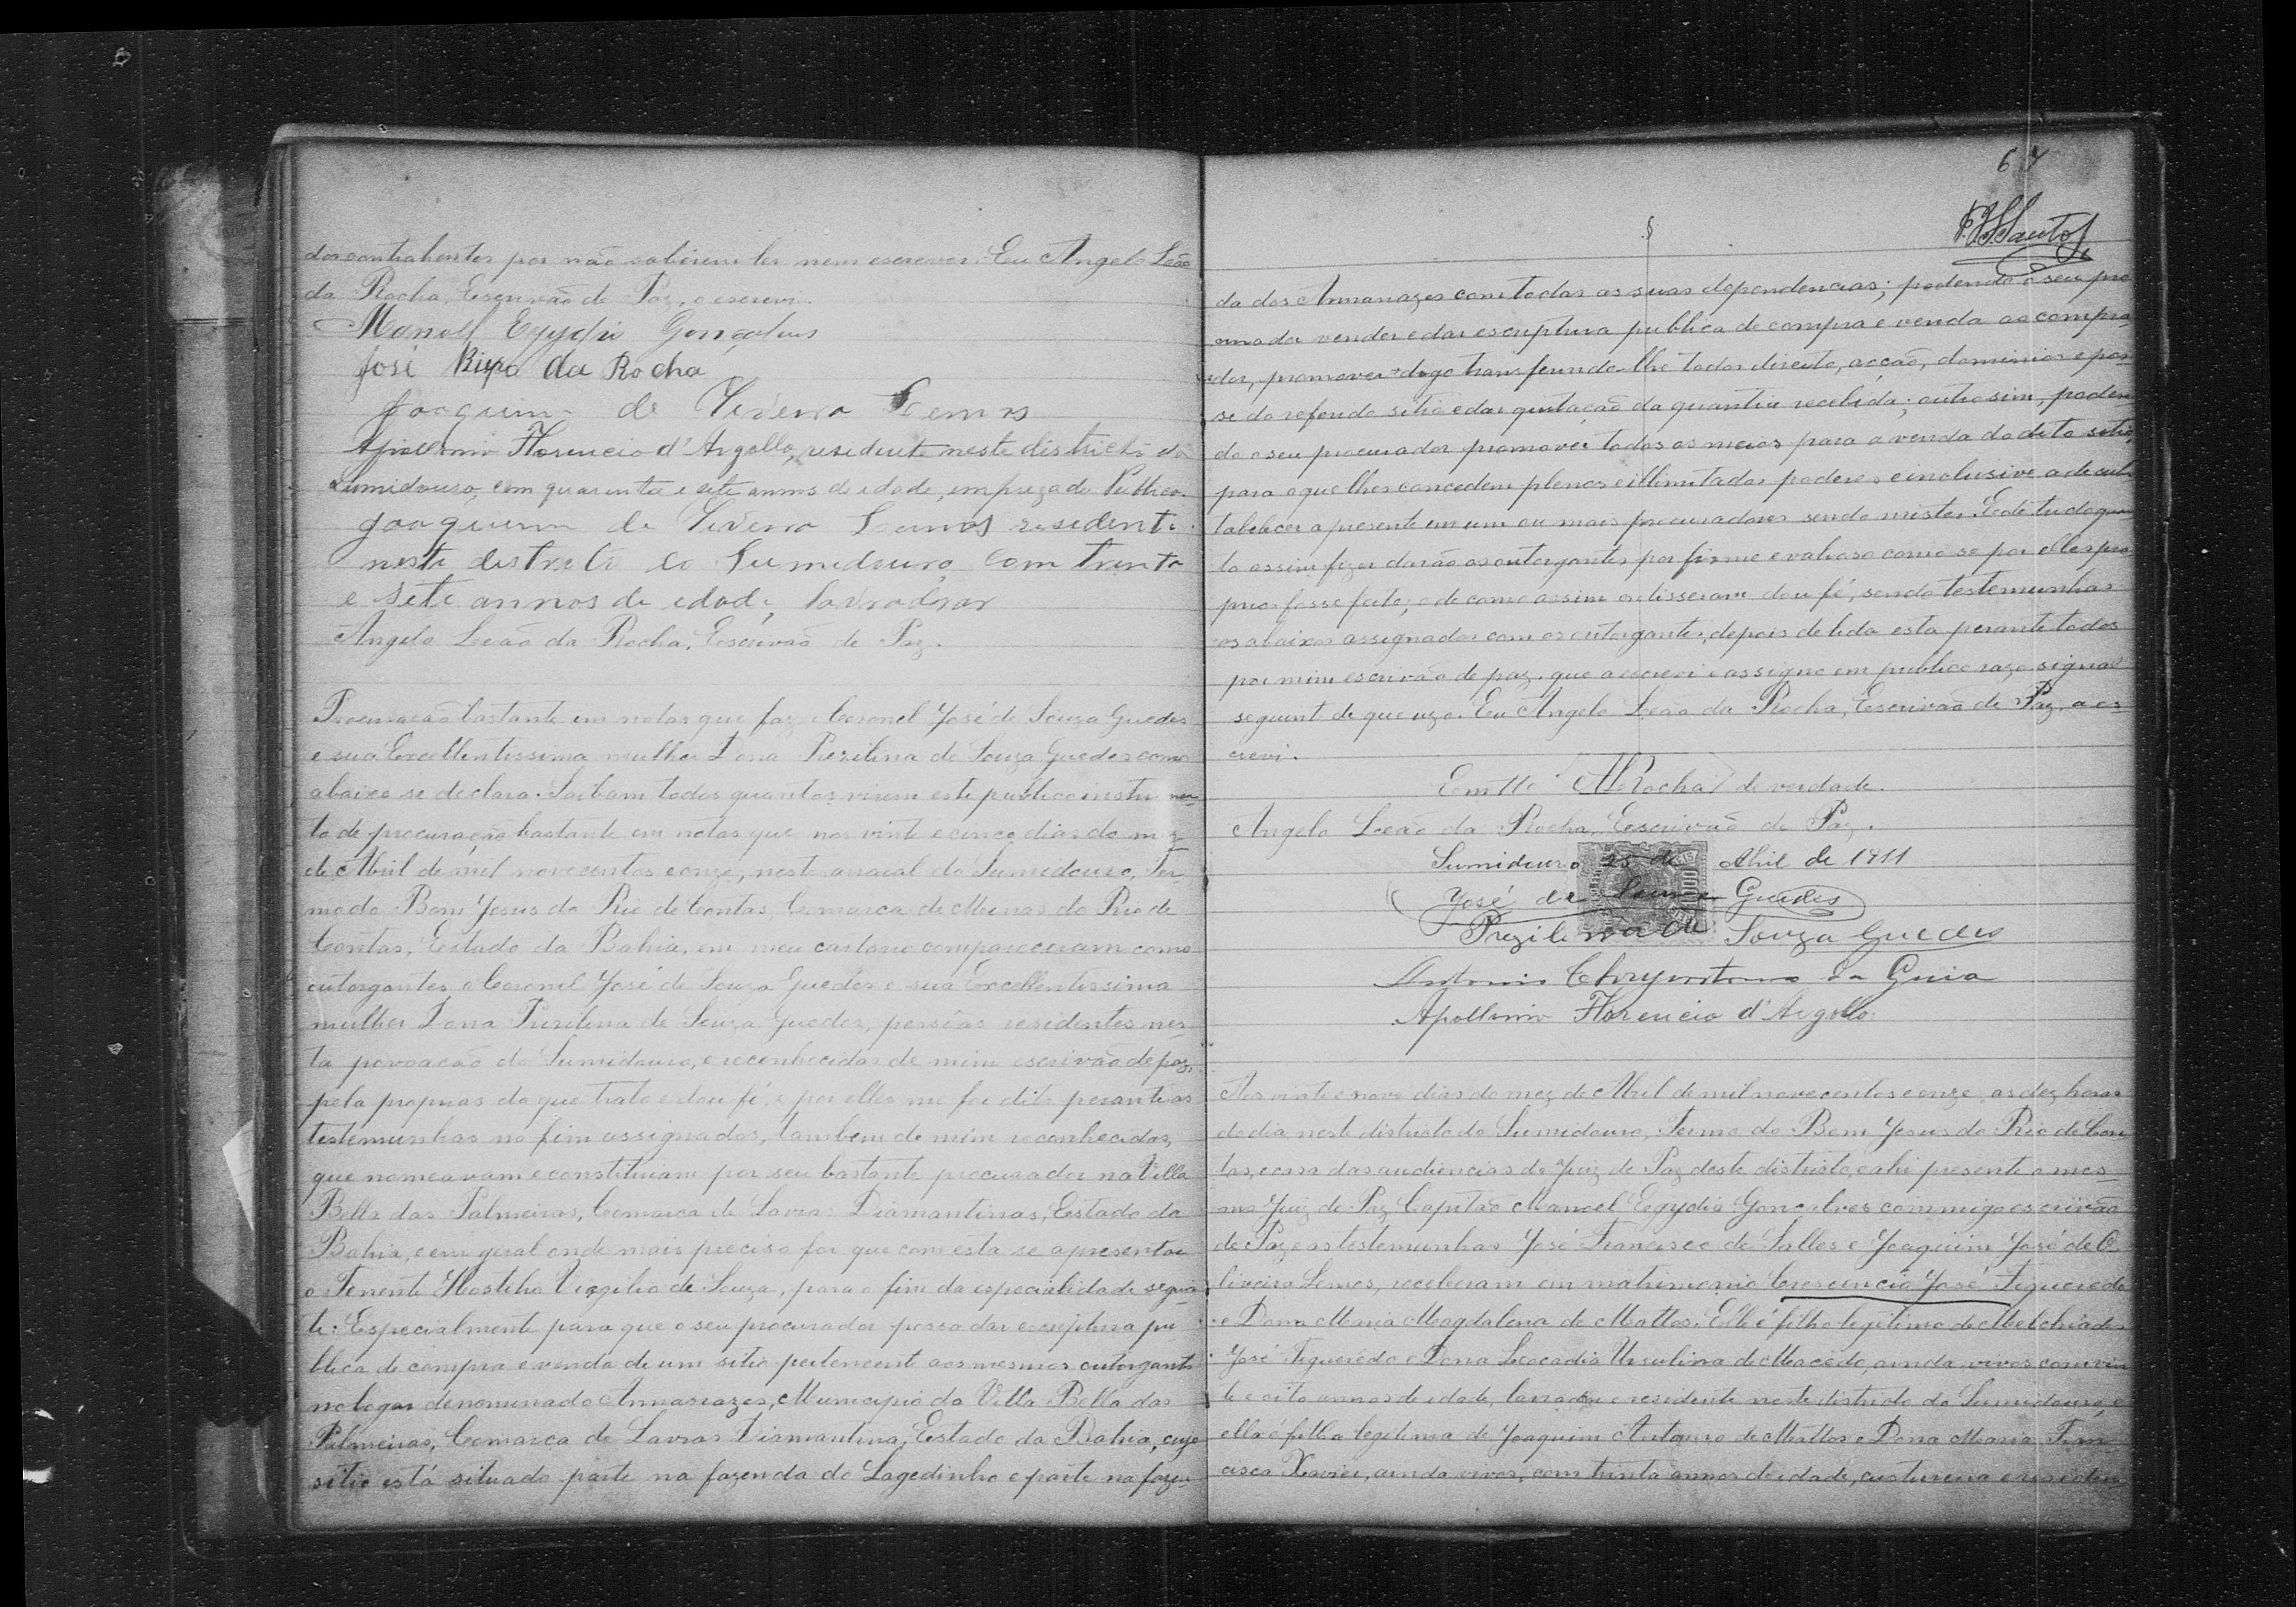 dos contrahentes por não saberem ler nem escrever. Eu Angelo Leão
da Rocha, Escrivão de Paz, o escrevi.
Manoel Egydio Gonçalves
José da Rocha
Joaquim de Lemos
Apollinio Florencio d'Argollo, residente neste districto do
Sumidouro, com quarenta e sete annos de idade, empregado Publico.
Joaquim de Lemos residente
neste distrcto do Sumidouro, com trinta
e sete annos de idade, lavrador
Angelo Leão da Rocha, Escrivão de Paz.
Procuração bastante em notas que faz o Coronel José de Souza Guedes
e sua Excellentissima mulher Dona Prezilina de Souza Guedes como
abaixo se declara. Saibam todos quantos virem este publico instrumen-
to de procuração bastante em notas que nos vinte e cinco dias do mez
de Abril de mil novecentos e onze, neste arraial do Sumidouro, Ter-
mo do Bom Jesus do Rio de Contas, Comarca de Minas do Rio de
Contas, Estado da Bahia, em meu cartorio compareceram como
outorgantes o Coronel José de Souza Guedes e sua Excellentissima
mulher Dona Prezilina de Souza Guedes, pessôas residentes nes-
ta povoação do Sumidouro, e reconhecidas de mim escrivão de paz,
pela proprias do que trato e dou fé, e por elles me foi dito perante as
testemunhas no fim assignadas, tambem de mim reconhecidas,
que nomeavam e constituiam por seu bastante procurador na Villa
Bella das Palmeiras, Comarca de Lavras Diamantinas, Estado da
Bahia, e em geral onde mais preciso for que com esta se apresentar
o Tenente Virgilio de Souza, para o fim da especialidade seguin-
te: Especialmente para que o seu procurador possa dar escriptura pu-
blica de compra e venda de um sitio pertencente aos mesmos outorgantes
no logar denominado Annanazes, Municipio da Villa Bella das
Palmeiras, Comarca de Lavras Diamantina, Estado da Bahia, cujo
sitio está situado parte na fazenda do Lagedinho e parte na fazen-
67
Santos
da dos Annanazes com todas as suas dependencias; podendo o seu pro
curador vender e dar escriptura publica de compra e venda ao compra-
dor, promover digo transferindo-lhe todos direito, acção, dominios e pos-
se do referido sitio e dar quitação da quantia recebida; outrosim, poden-
do o seu procurador promover todos os meios para a venda do dito sitio,
para o que lhes concedem plenos e illimitados poderes e inclusive a de subs
tabelecer a presente em um ou mais procuradores sendo mister. E de tudo quan
to assim fizer darão os outorgantes por firme e valioso como se por elles pro
prios fosse feito; e de como assim o disseram dou fé, sendo testemunhas
os abaixos assignados com os outorgantes, depois de lida esta perante todos
por mim escrivão de paz, que a escrevi e assigno em publico razo signal
seguinte de que uzo. Eu Angelo Leão da Rocha, Escrivão de Paz, a es-
crevi.
Em tto ALRocha de verdade.
Angelo Leão da Rocha, Escrivão de Paz.
Sumidouro 25 de Abril de 1911
José de Souza Guedes
Prezilina de Souza Guedes
Antonio Chrysostomo da Guia
Apollinio Florencio d'Argollo.
Aos vinte e nove dias do mez de Abril de mil novecentos e onze, as dez horas
do dia neste districto do Sumidouro, Termo do Bom Jesus do Rio de Con
tas, e casa das audiencias do Juiz de Paz deste districto, e ahi presente o mes-
mo Juiz de Paz Capitão Manoel Egydio Gonçalves commigo escrivão
de Paz, e as testemunhas José Francisco de Salles e Joaquim José de O
liveira Lemos, receberam em matrimonio Crescencio José Figueredo
e Dona Maria Magdalena de Mattos. Elle é filho legitimo de Melchiades
José Figueredo e Dona Leocadia Ursulina de Macêdo, ainda vivos com vin
te e oito annos de idade, lavrador e residente neste districto do Sumidouro, e
ella é filha legitima de Joaquim Antonio de Mattos e Dona Maria Fran
cisca Xavier, ainda vivos, com trinta annos de idade, custureira e residen